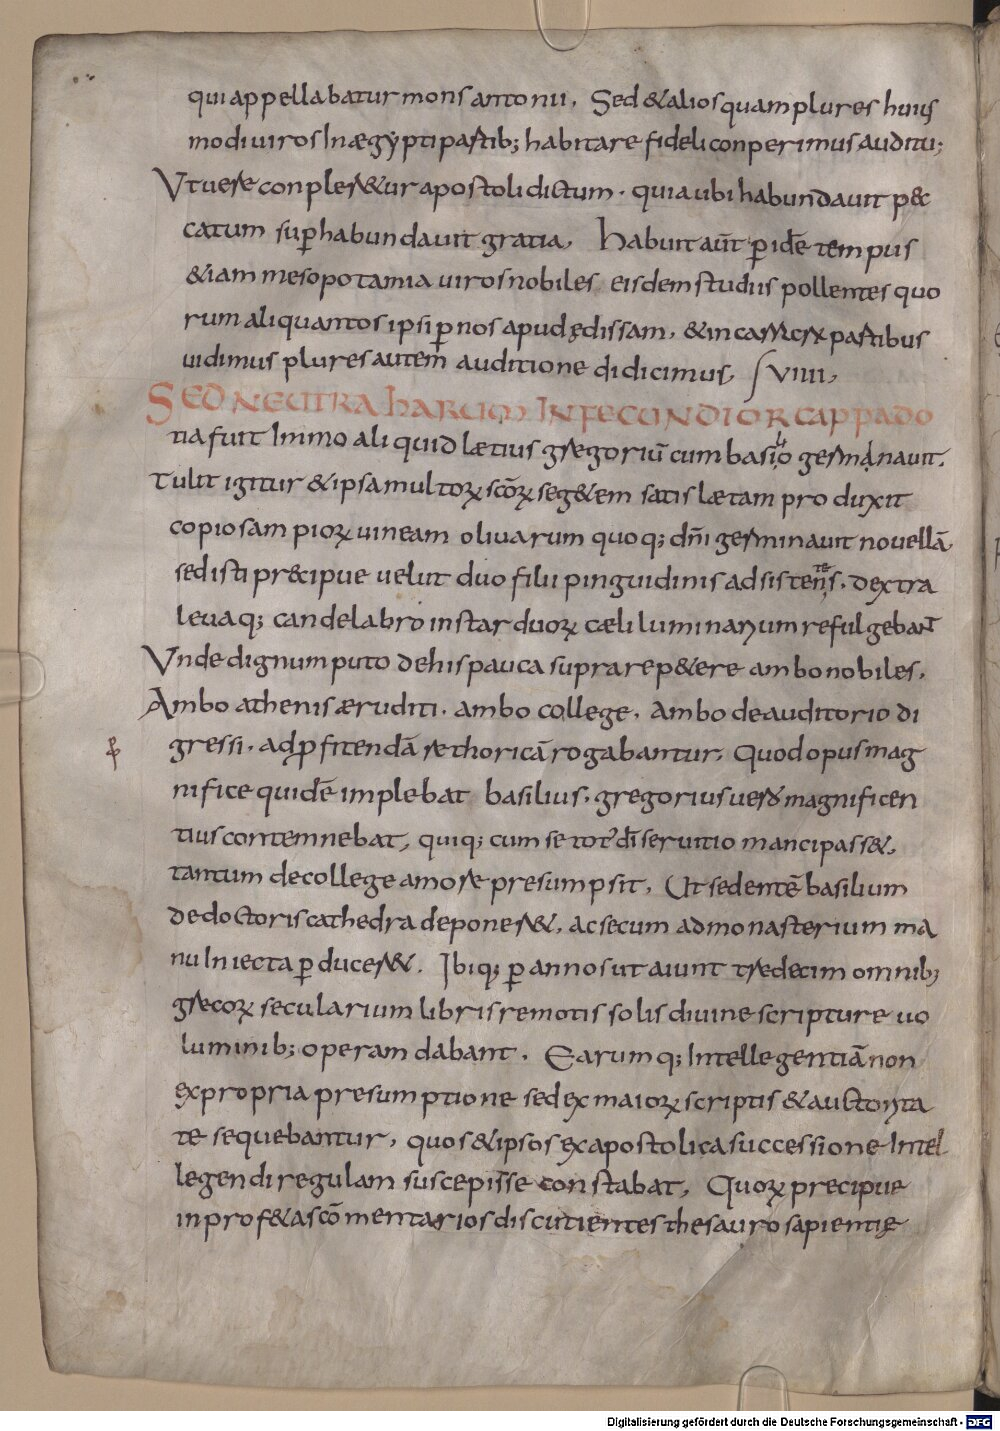 qui appellabatur mons antonii. Sed & alios quam plures huius
modi uiros In ægypti partib; habitare fideli conperimus auditu;
Vt uere conpler&ur apostoli dictum. quia ubi habundauit pec
catum sup̄habundauit gratia. Habuit aūt p̄ idē tempus
&iam mesopotamia uiros nobiles eisdem studiis pollentes quo
rum aliquantos ipsi p̄nos apud ędissam. & in carris ex partibus
uidimus plures autem auditione didicimus, VIIII,
SED NEUTRA HARUM INFECUNDIOR CAPPADO
tia fuit Immo aliquid lætius gregoriū cum basilio germinauit.
Tulit igitur & ipsa multorꝝ scōrꝝ seg&em satis lætam produxit
copiosam piorꝝ uineam oliuarum quoq; dn̄i germinauit nouellā,
sed isti precipue uelut duo filii pinguidinis adsistentes. dextra
leuaq; candelabro instar duorꝝ cæli luminarium refulgebant
Vnde dignum puto de his pauca supra rep&ere ambo nobiles.
Ambo athenis æruditi. ambo college. Ambo de auditorio di
gressi. ad p̄fitendā rethoricā rogabantur. Quod opus mag
nifice quidē implebat basilius. gregorius uero magnificen
tius contemnebat, quiq; cum se totū dī seruitio mancipass&,
tantum de college amore presumpsit. Ut sedentē basilium
de doctoris cathedra deponer&. ac secum ad monasterium ma
nu Iniecta p̄ducer&. Ibiq; p̄ annos ut aiunt tredecim omnib;
grecorꝝ secularium libris remotis solis diuine scripture uo
luminib; operam dabant. Earumq; Intellegentiā non
ex propria presumptione sed ex maiorꝝ scriptis & auctorita
te sequebantur, quos & ipsos ex apostolica successione Intel
legendi regulam suscepisse constabat, Quorꝝ precipue
in prof&as cōmentarios discutientes thesauro sapientię
Digitalisierung gefördert durch die Deutsche Forschungsgemeinschaft - DFG